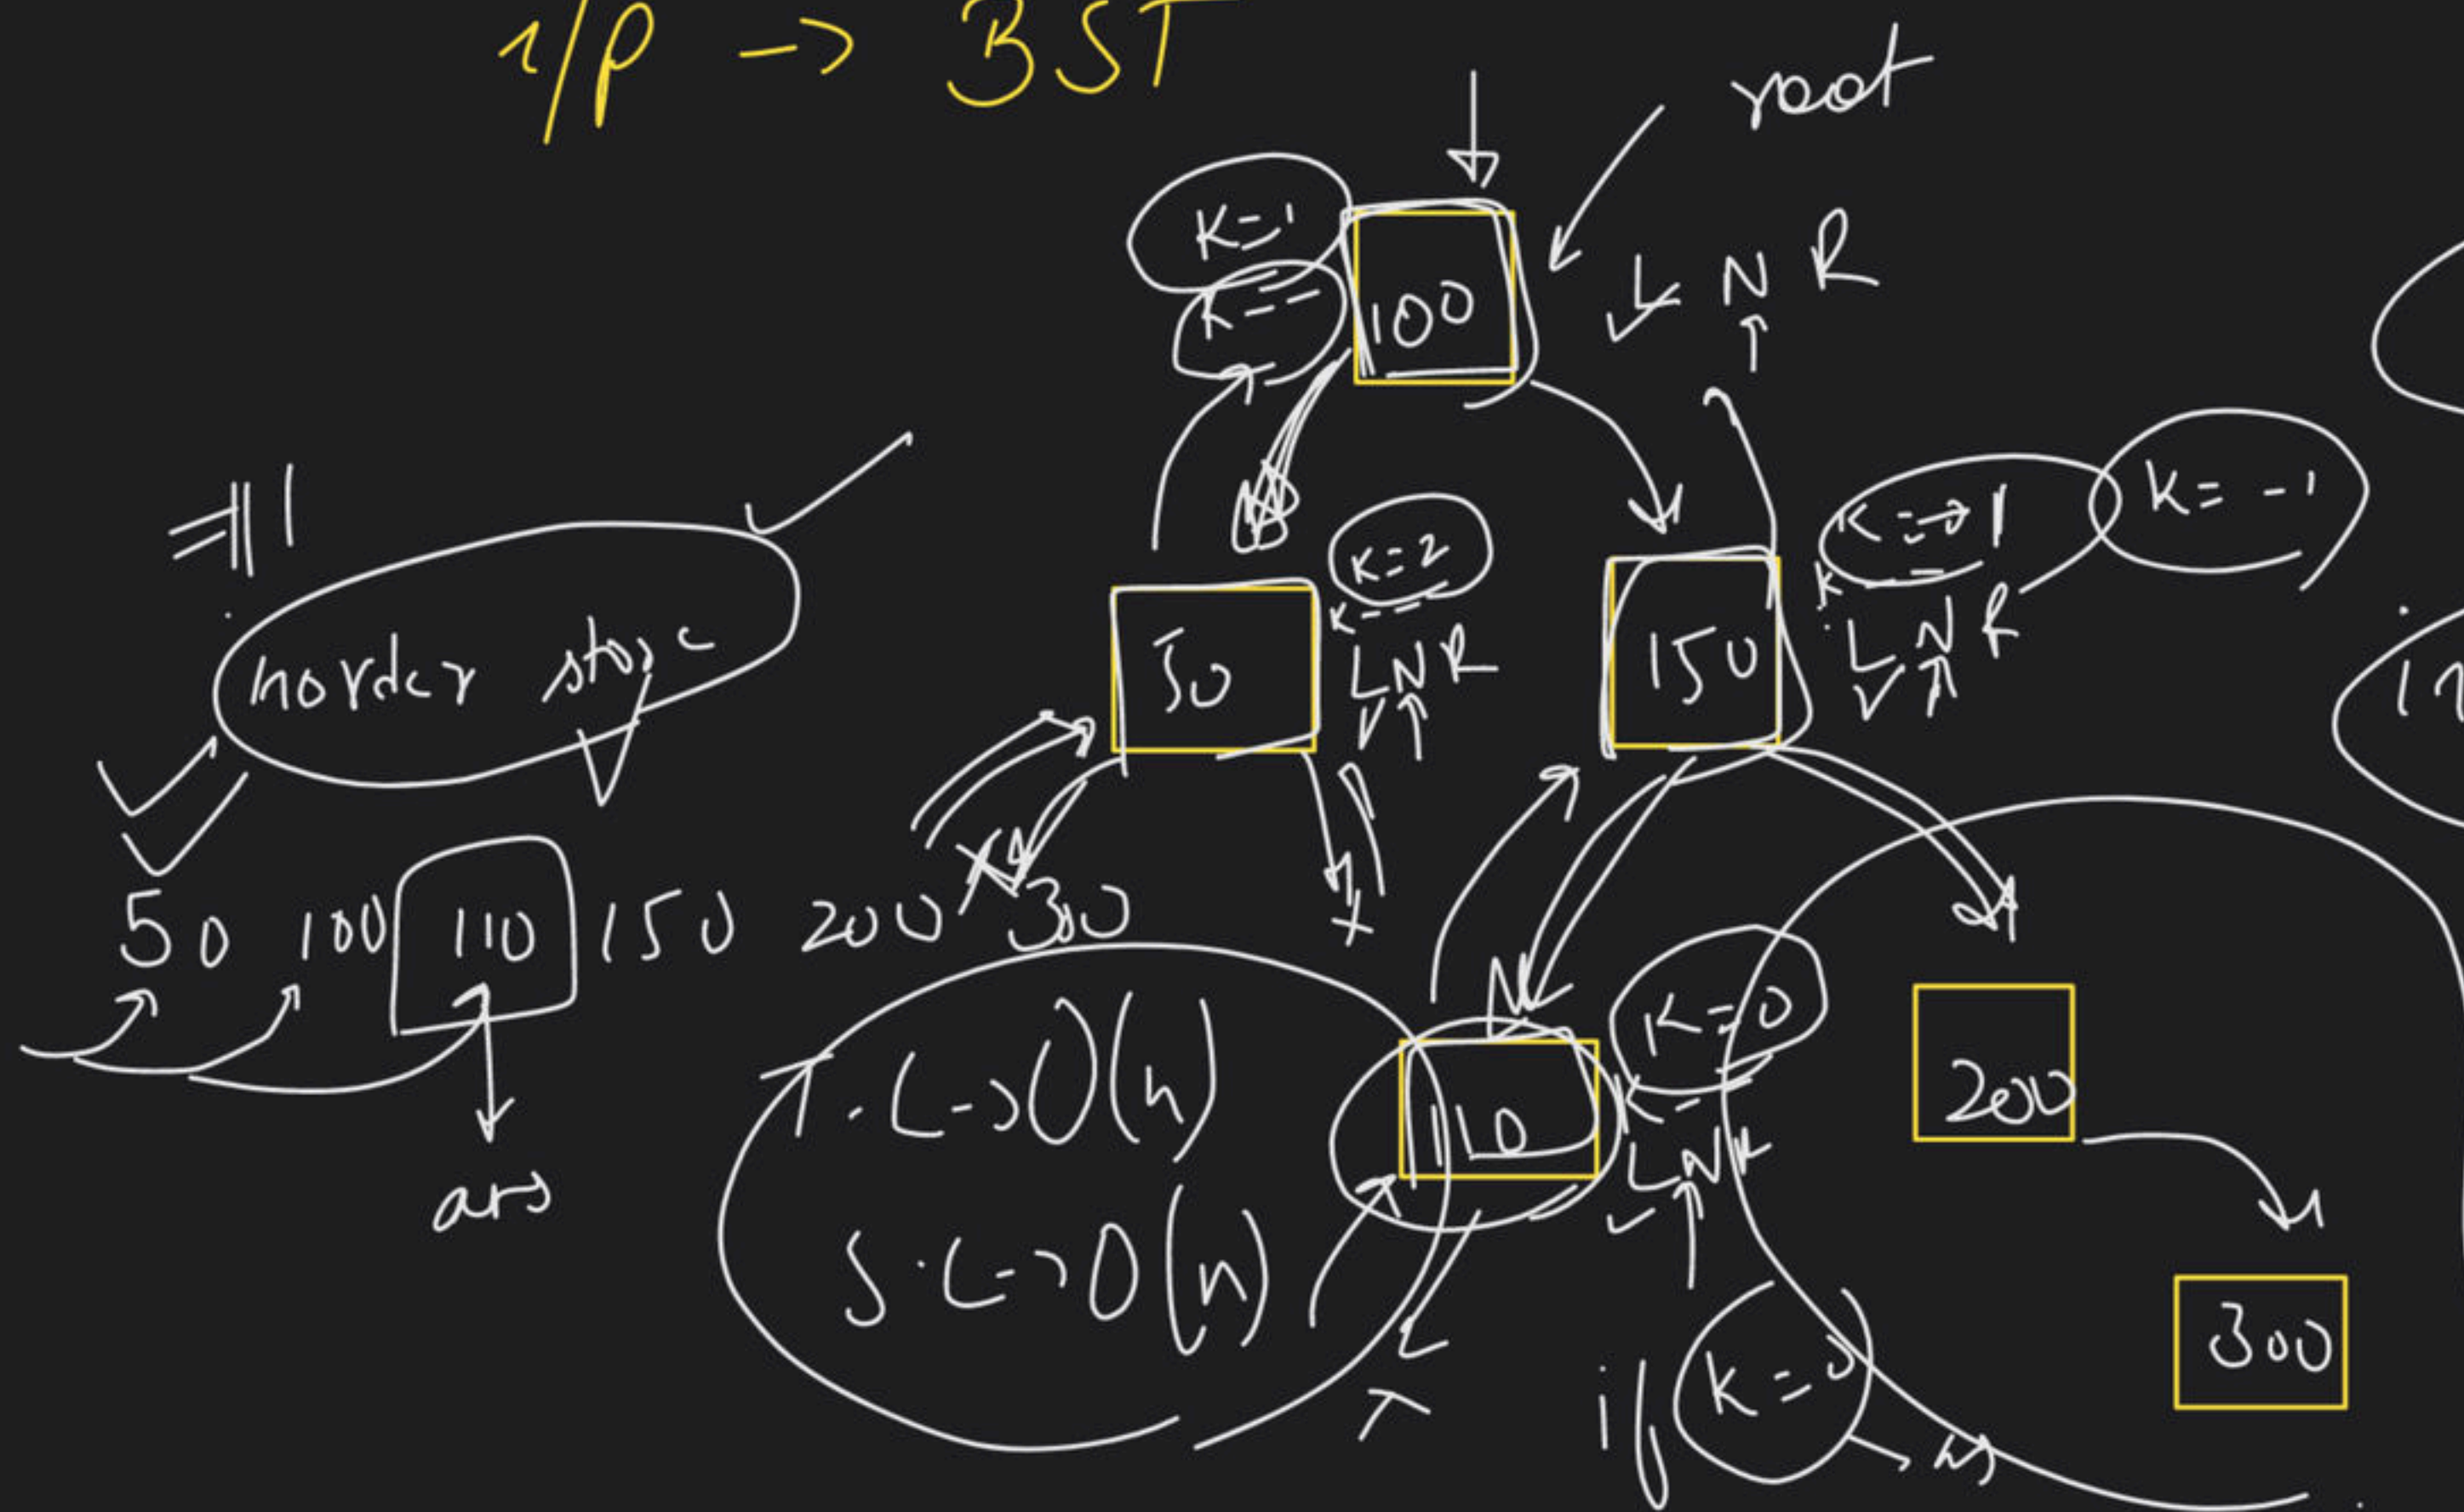 i/p -> BST
root
K=1
K--
100
L N R
K=2
K--
50
L N R
K=->1
K--
150
L N R
K=-1
inorder store
50 100 110 150 200 300
ans
T.C->O(n)
S.C->O(n)
110
K=0
K--
L N R
200
300
if K=0